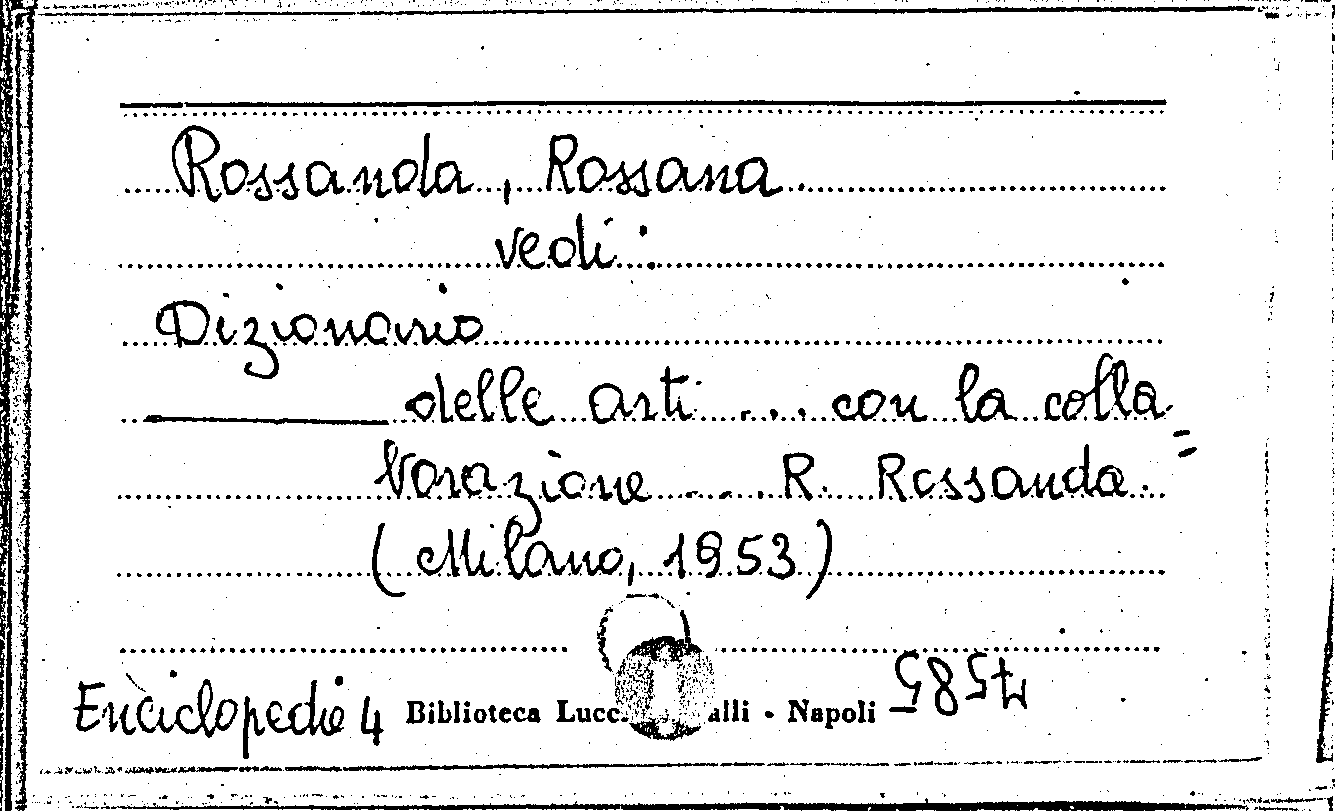 Rossanda, Rossana
vedi:
Dizionario
delle arti ... con la colla=
borazione ... R. Rossanda.
(Milano, 1953)
Enciclopedie 4 Biblioteca - Napoli